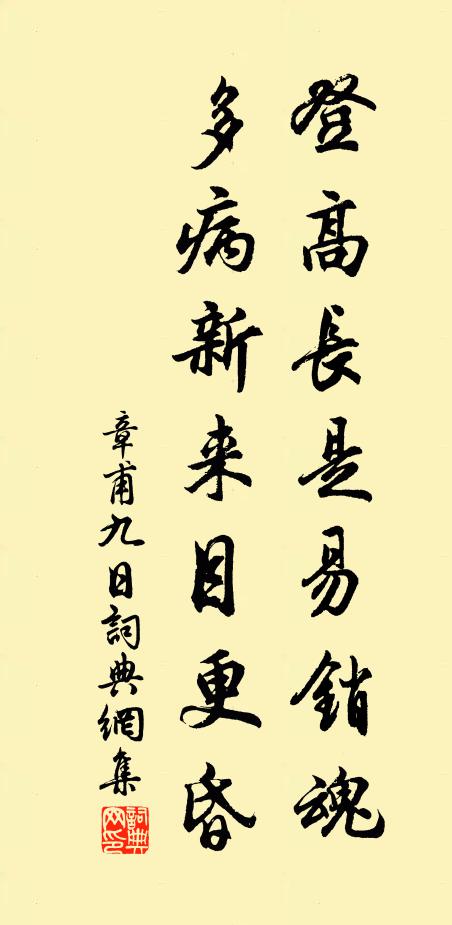 登高長是易銷魂
多病新来目更昏
章甫九日詞典網集
詞典網印